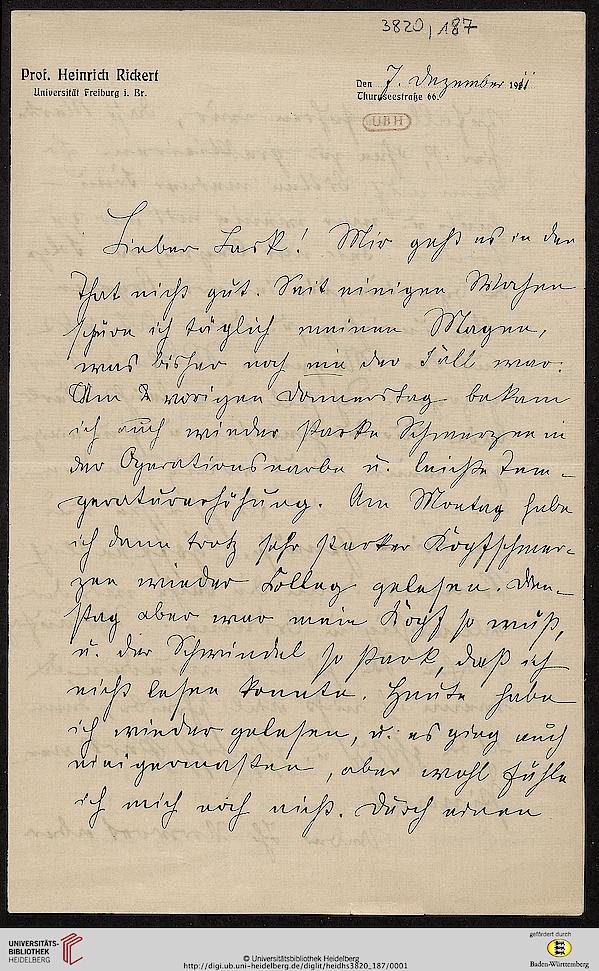 3820, 187
Prof. Heinrich Rickert
Universität Freiburg i. Br.
Den 7. Dezember 1911
Thurnseestraße 66.
UBH
Lieber Lask! Mir geht es in der
That nicht gut. Seit einigen Wochen
spüre ich täglich meinen Magen,
was bisher noch nie der Fall war.
Am vorigen Donnerstag bekam
ich auch wieder starke Schmerzen in
der Operationsnarbe u. leichte Tem-
peraturerhöhung. Am Montag habe
ich dann trotz sehr starker Kopfschmer-
zen wieder Colleg gelesen. Dien-
stag aber war mein Kopf so wüst,
u. der Schwindel so stark, daß ich
nicht lesen konnte. Heute habe
ich wieder gelesen, u. es ging auch
einigermaßen, aber wohl fühle
ich mich noch nicht. Durch einen
UNIVERSITÄTS-
BIBLIOTHEK
HEIDELBERG
© Universitätsbibliothek Heidelberg
http://digi.ub.uni-heidelberg.de/diglit/heidhs3820_187/0001
gefördert durch
Baden-Württemberg